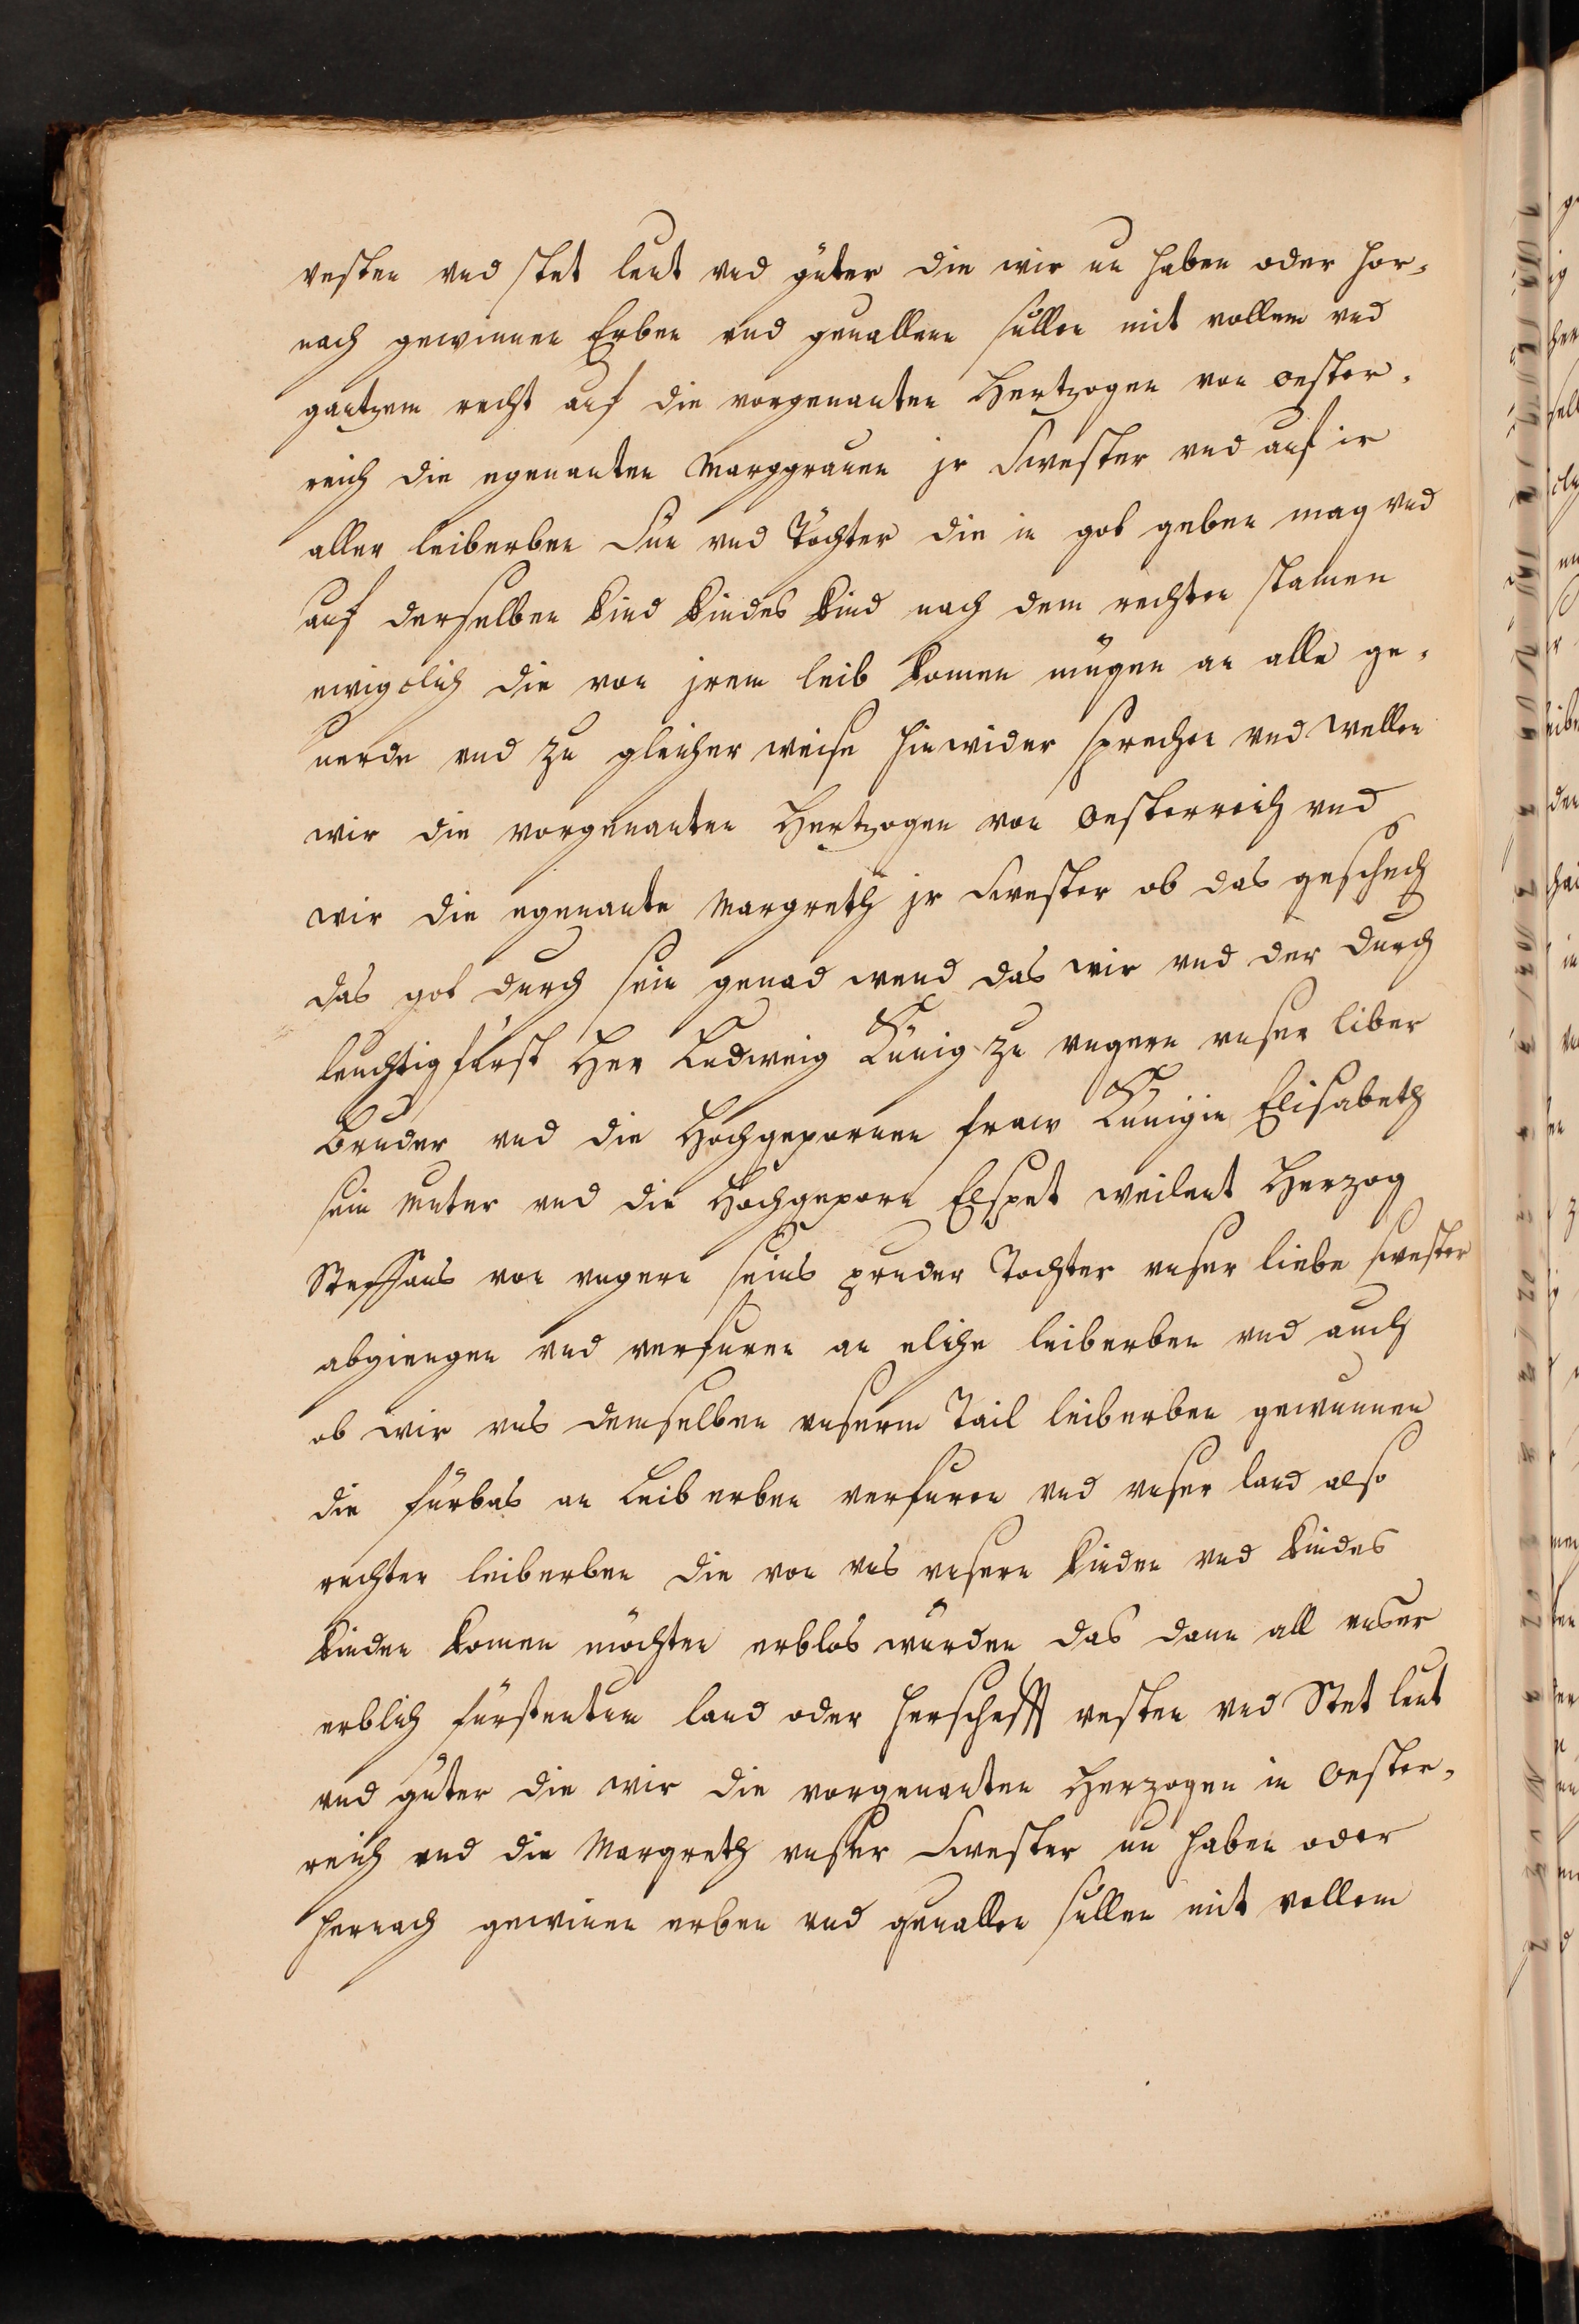 vesten vnd stet leut vnd güter die wir nu haben oder her-
nach gewinnen Erben vnd geuallenn süllen mit vollem vnd
gantzem recht auf die vorgenanten Hertzogen von oester-
reich die egenanten Marggrauen jr Swester vnd auf ir
aller leiberben Sün vnd Töchter die in got geben mag vnd
auf derselben kind kindes kind nach dem rechten stamen
ewigclich die von jrem leib komen mügen an alle ge-
uerde vnd zu gleicher weise hinwider sprechen vnd wellen
wir die vorgenanten Hertzogen von Oesterreich vnd
wir die egenante Margreth jr Swester ob das geschech
das got durch sein genad wend das wir vnd der durch
leuchtig fürst Her Ludweig Künig zu vngern vnser liber
Bruder vnd die Hochgepornen fraw Künigin Elisabeth
sein Muter vnd die Hochgeporn Elspet weilent Herzog
Steffans von vngern seins pruder Tochter vnser liebe swester
abgiengen vnd verfuren an eliche leiberben vnd auch
ob wir vns demselben vnserm Tail leiberben gewunnen
die fürbas an Leib erben verfuren vnd vnser land also
rechter leiberben die von vns vnsern kinden vnd kindes
kinden komen möchten erblos würden das dann all vnser
erblich fürstentum land oder herscheft vesten vnd Stet leut
vnd güter die wir die vorgenanten Herzogen in Oester-
reich vnd die Margreth vnser Swester nu haben oder
hernach gewinen erben vnd geuallen süllen mit vollem